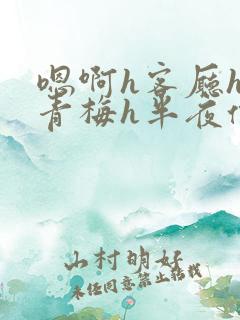 嗯啊h客厅h
青梅h半夜
山村明好
未经同意禁止转载